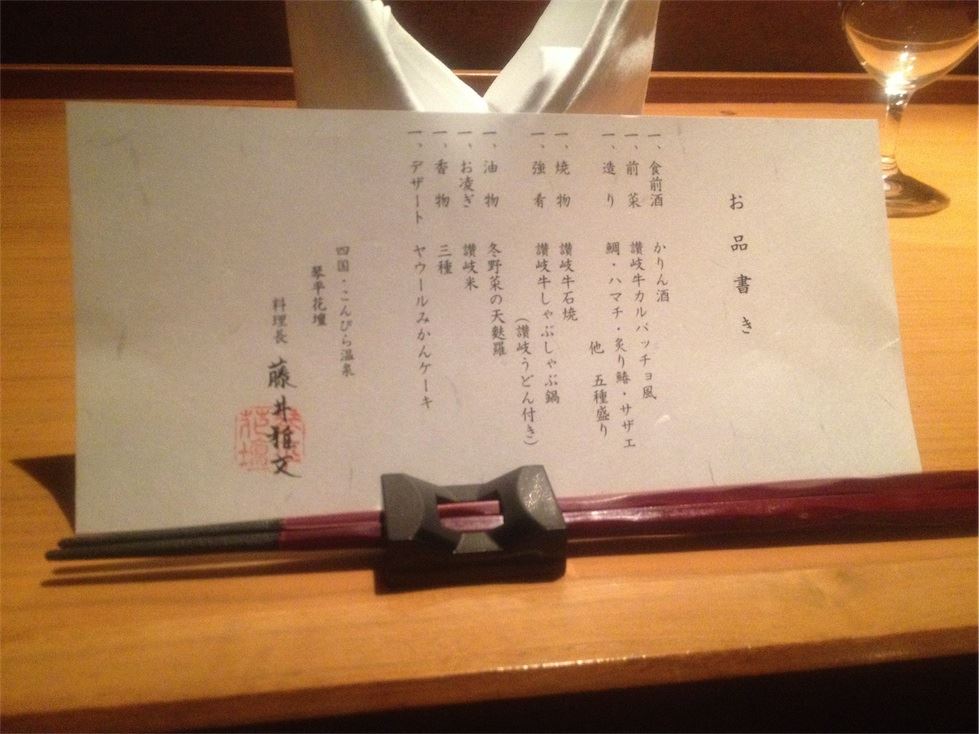 お品書き
一、食前酒 かりん酒
一、前菜 讃岐牛カルパッチョ風
一、造り 鯛・ハマチ・炙り鰆・サザエ
他 五種盛り
一、焼物 讃岐牛石焼
一、強肴 讃岐牛しゃぶしゃぶ鍋
(讃岐うどん付き)
一、油物 冬野菜の天麩羅
一、お凌ぎ 讃岐米
一、香物 三種
一、デザート ヤウールみかんケーキ
四国・こんぴら温泉
琴平花壇
料理長 藤井雅文
花壇